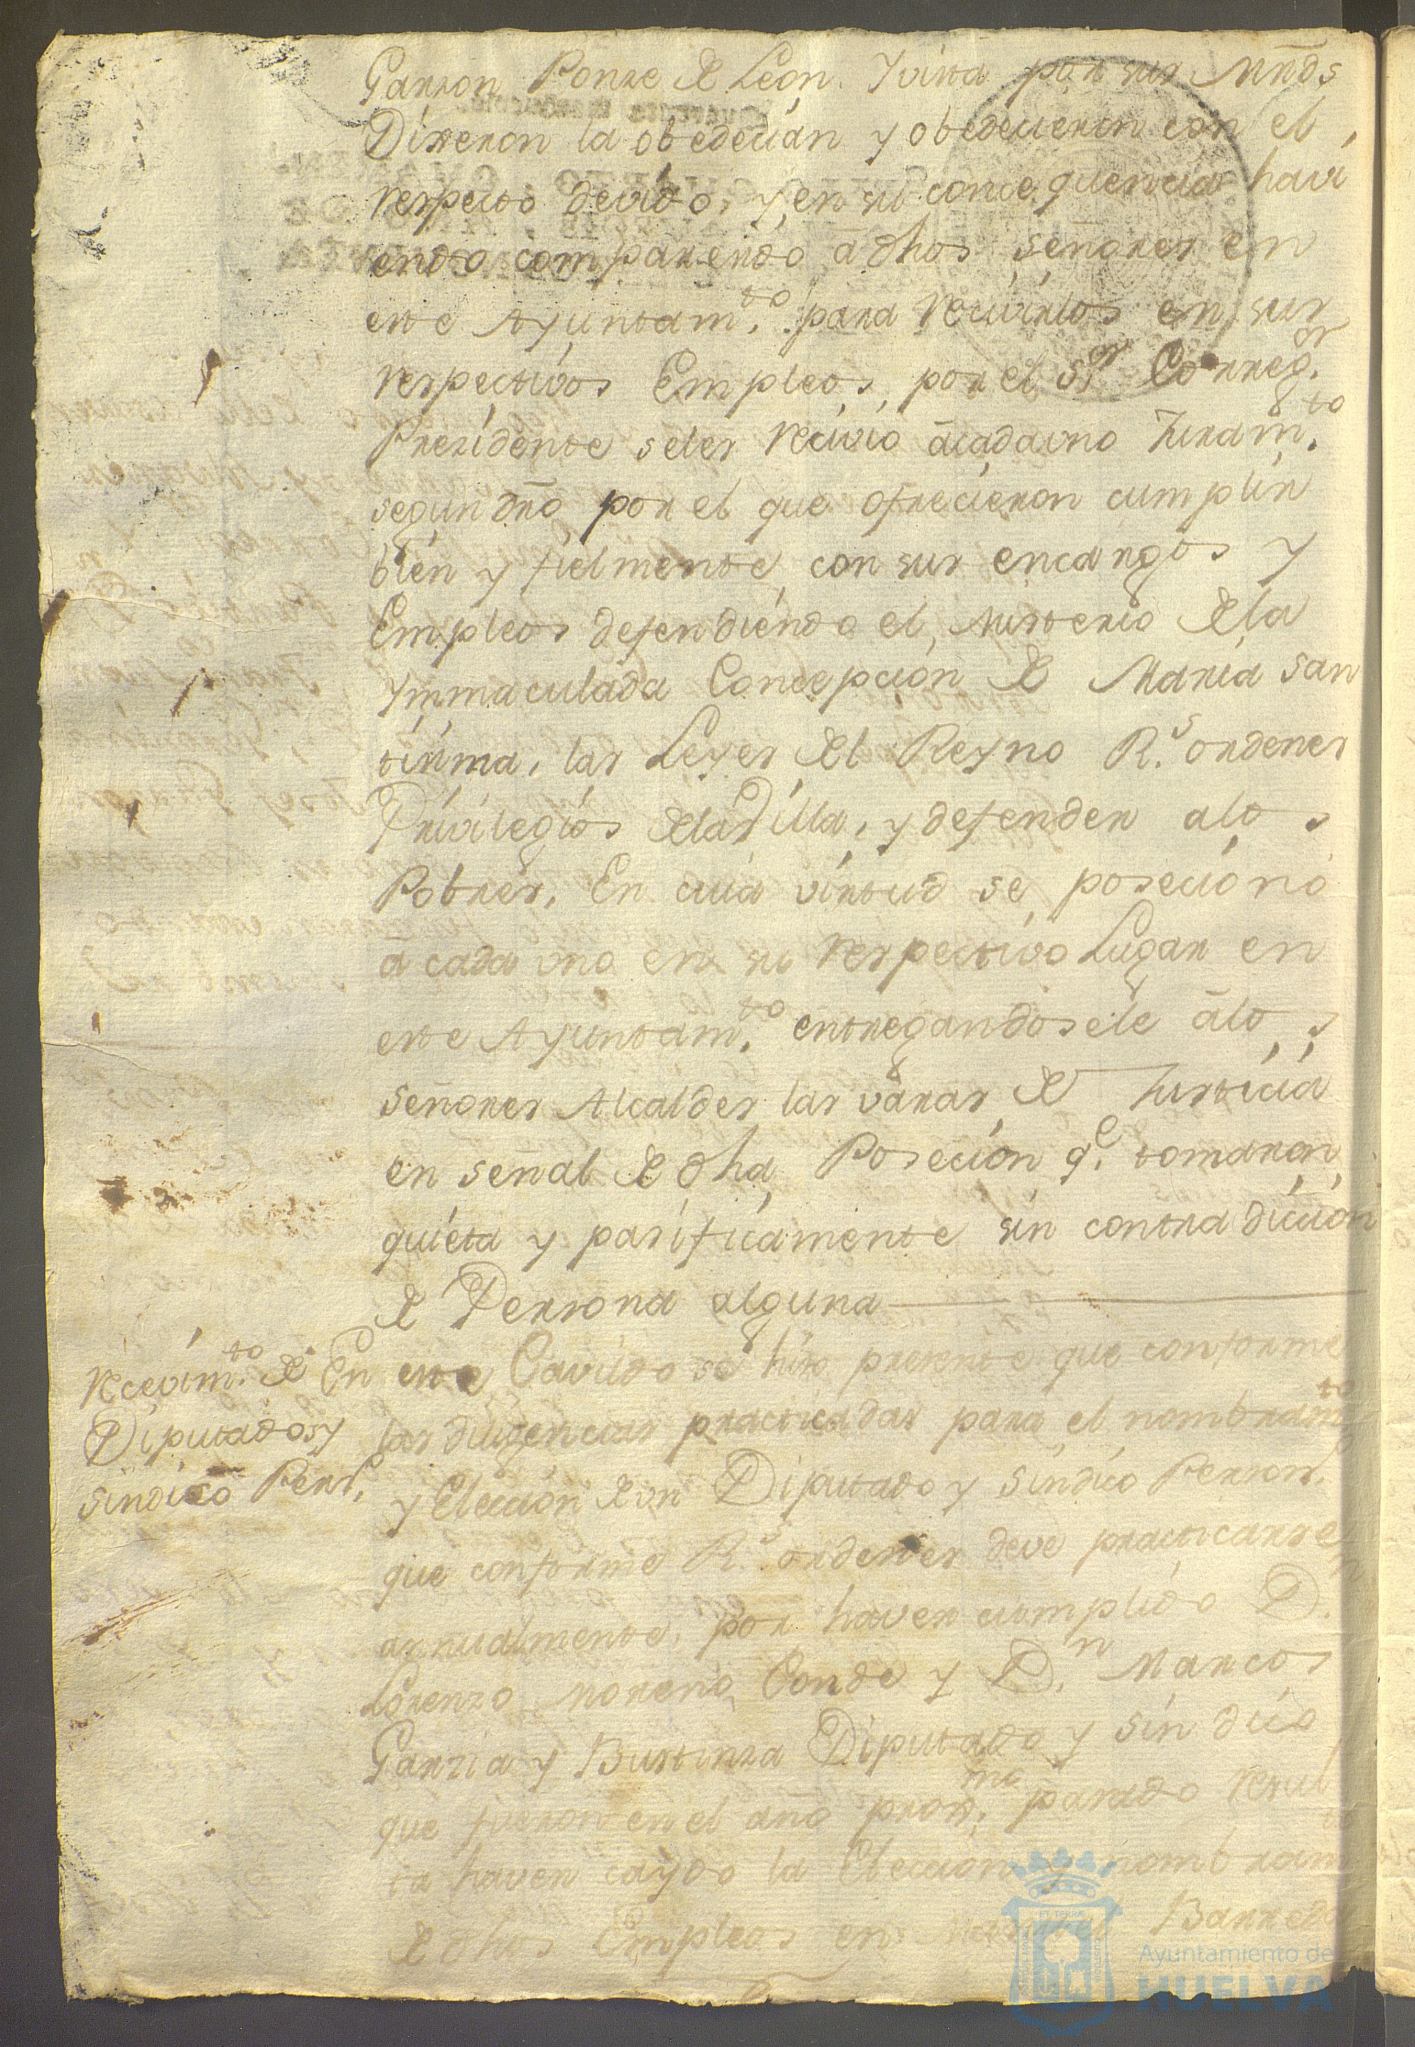 Garzon Ponze de León. Y vista por sus Mrds
Dixeron la obedecian y obedecieron con el
respecto devido, y en su consequencia havi
endo comparendo a dhos señores en
este Ayuntam.to para recivirlos en sus
respectivos Empleos, por el S.or Correg.or
Presidente se les recivio a cada uno Juram.to
segun dro por el que ofrecieron cumplir
bien y fielmente con sus encargos y
Empleos defendiendo el Misterio de la
Ymmaculada Concepcion de Maria San
tisima, las Leyes del Reyno R.s ordenes
Privilegios de la Villa, y defender a los
Pobres, En cuia virtud se posecionó
a cada uno en su respectivo Lugar en
este Ayuntam.to entregandosele a los
señores Alcaldes las varas de Justicia
en señal de dha Poseción q.e tomaron
quieta y pasificamente sin contradición
de Persona alguna
Recevim.to de
Diputados y
sindico Pers.o
En este Cavildo se hizo presente que conforme
las diligencias practicadas para el nombram.to
y Elección de un Diputado y Sindico Person.o
que conforme R.s ordenes deve practicarse
annualmente, por haver cumplido D.n
Lorenzo Moreno Conde y D.n Marcos
Garzia y Bustinza Diputado y sindico
que fueron en el año prox.mo pasado resul
ta haver caydo la Elección y nombram.to
de dhos Empleos en Barreda
Ayuntamiento de
HUELVA